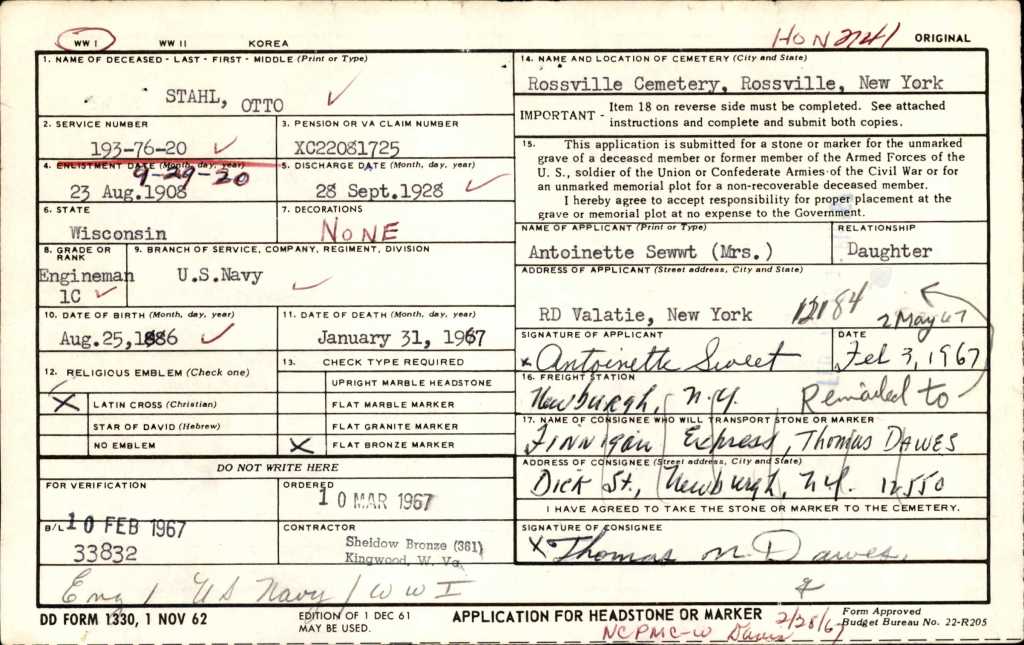 WW I WW II KOREA HON 2741 ORIGINAL
1. NAME OF DECEASED - LAST - FIRST - MIDDLE (Print or Type)
STAHL, OTTO
2. SERVICE NUMBER
193-76-20
3. PENSION OR VA CLAIM NUMBER
XC22081725
4. ENLISTMENT DATE (Month, day, year)
9-29-20
23 Aug.1908
5. DISCHARGE DATE (Month, day, year)
28 Sept.1928
6. STATE
Wisconsin
7. DECORATIONS
NONE
8. GRADE OR RANK
Engineman
1C
9. BRANCH OF SERVICE, COMPANY, REGIMENT, DIVISION
U.S.Navy
10. DATE OF BIRTH (Month, day, year)
Aug.25,1886
11. DATE OF DEATH (Month, day, year)
January 31, 1967
12. RELIGIOUS EMBLEM (Check one)
X LATIN CROSS (Christian)
STAR OF DAVID (Hebrew)
NO EMBLEM
13. CHECK TYPE REQUIRED
UPRIGHT MARBLE HEADSTONE
FLAT MARBLE MARKER
FLAT GRANITE MARKER
X FLAT BRONZE MARKER
DO NOT WRITE HERE
FOR VERIFICATION
10 FEB 1967
ORDERED
10 MAR 1967
B/L
33832
CONTRACTOR
Sheidow Bronze (381)
Kingwood, W. Va.
Eng 1 US Navy / WW I
14. NAME AND LOCATION OF CEMETERY (City and State)
Rossville Cemetery, Rossville, New York
IMPORTANT - Item 18 on reverse side must be completed. See attached
instructions and complete and submit both copies.
15. This application is submitted for a stone or marker for the unmarked
grave of a deceased member or former member of the Armed Forces of the
U. S., soldier of the Union or Confederate Armies of the Civil War or for
an unmarked memorial plot for a non-recoverable deceased member.
I hereby agree to accept responsibility for proper placement at the
grave or memorial plot at no expense to the Government.
NAME OF APPLICANT (Print or Type)
Antoinette Sewwt (Mrs.)
RELATIONSHIP
Daughter
ADDRESS OF APPLICANT (Street address, City and State)
RD Valatie, New York 12184
2 May 67
SIGNATURE OF APPLICANT
x Antoinette Sweet
DATE
Feb 3, 1967
16. FREIGHT STATION
Newburgh, N.Y. Remailed to
17. NAME OF CONSIGNEE WHO WILL TRANSPORT STONE OR MARKER
FINNIGAN Express, Thomas DAWES
ADDRESS OF CONSIGNEE (Street address, City and State)
Dick St., Newburgh, N.Y. 12550
I HAVE AGREED TO TAKE THE STONE OR MARKER TO THE CEMETERY.
SIGNATURE OF CONSIGNEE
X Thomas M. Dawes.
DD FORM 1330, 1 NOV 62
EDITION OF 1 DEC 61
MAY BE USED.
APPLICATION FOR HEADSTONE OR MARKER
NCPMC-W 2/28/67
Form Approved
Budget Bureau No. 22-R205